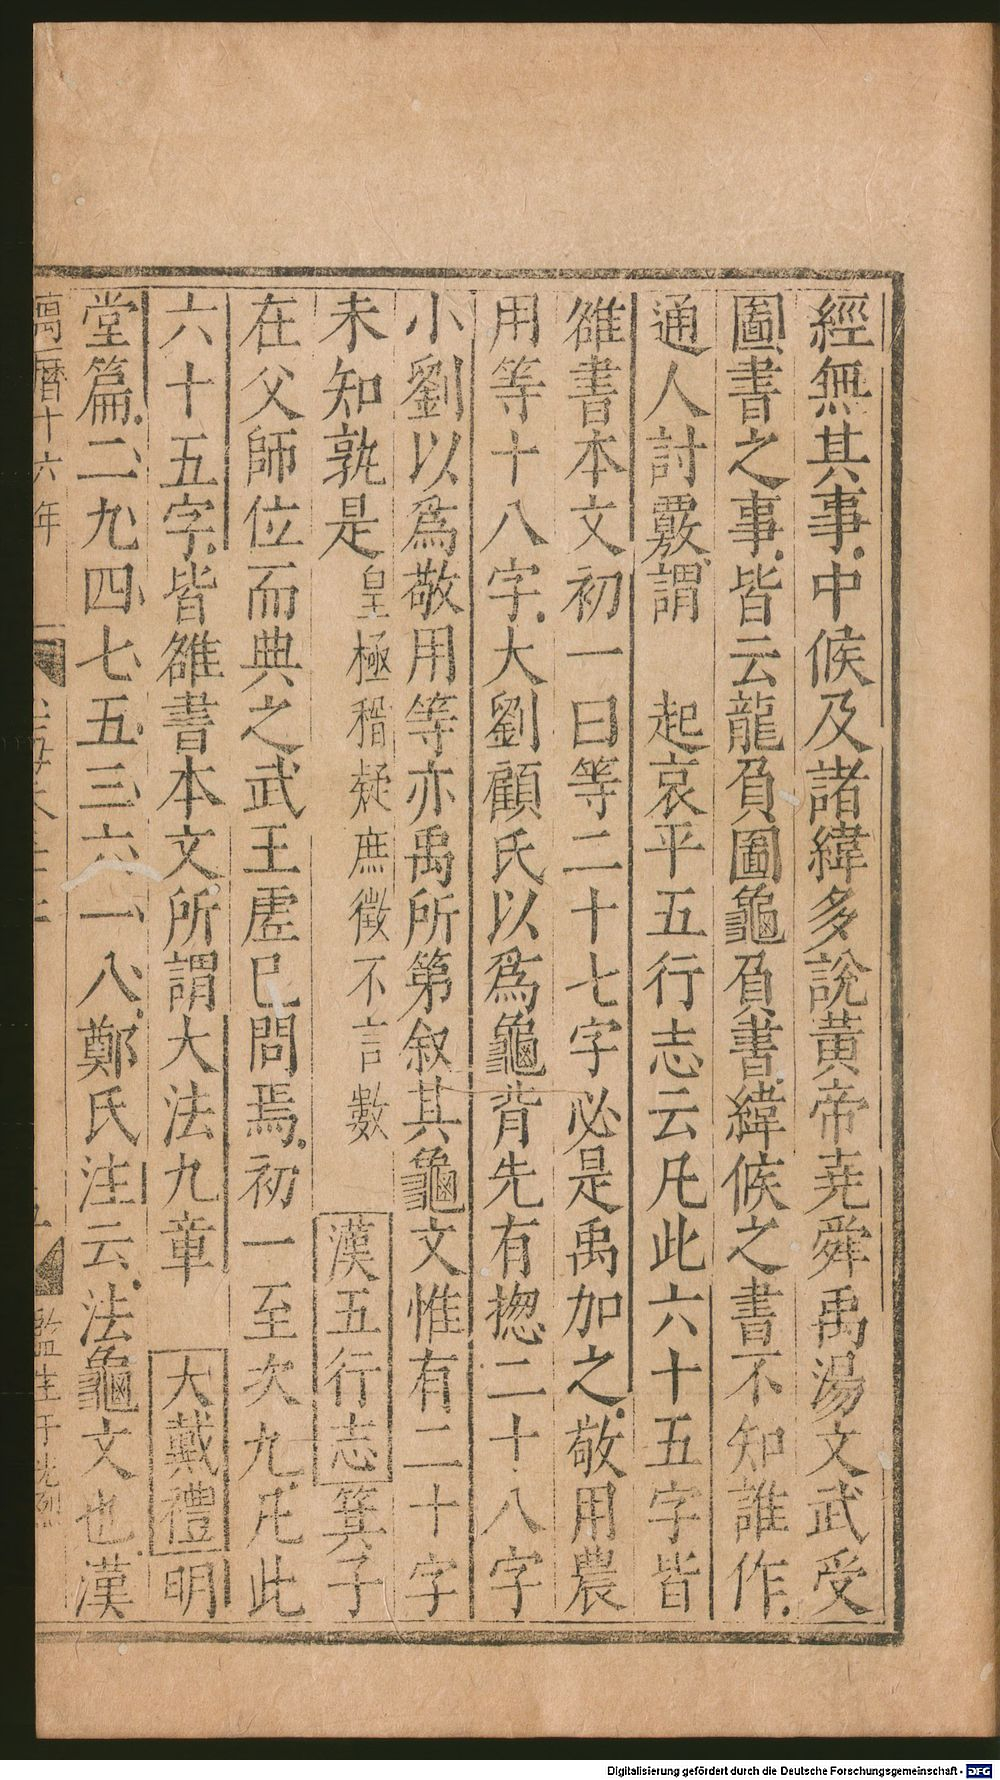 經無其事中候及諸緯多說黃帝堯舜禹湯文武受
圖書之事皆云龍負圖龜負書緯候之書不知誰作
通人討覈謂 起哀平五行志云凡此六十五字皆
雒書本文初一曰等二十七字必是禹加之敬用農
用等十八字大劉顧氏以爲龜背先有揔二十八字
小劉以爲敬用等亦禹所第叙其龜文惟有二十字
未知孰是皇極稽疑庶徵不言數 漢五行志箕子
在父師位而典之武王虛已問焉初一至次九凡此
六十五字皆雒書本文所謂大法九章 大戴禮明
堂篇二九四七五三六一八鄭氏注云法龜文也漢
萬曆十六年
監生于光烈
Digitalisierung gefördert durch die Deutsche Forschungsgemeinschaft - DFG